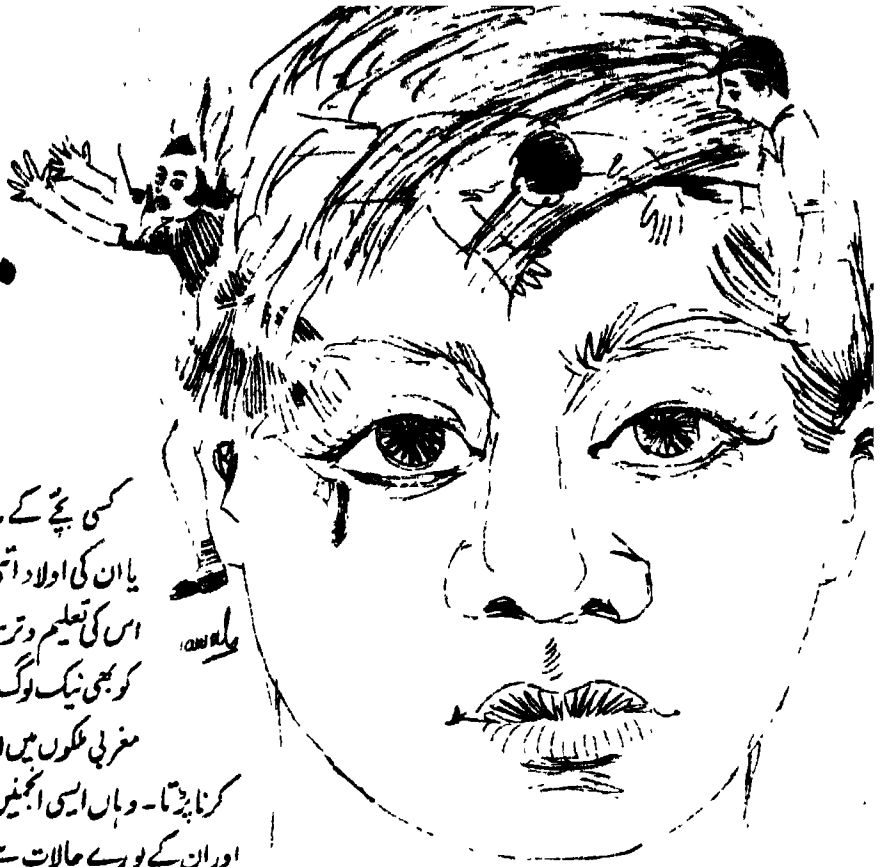 کسی بچے کے
یا ان کی اولاد
اس کی تعلیم و
کو بھی نیک لوگ
مغربی ملکوں میں
کرنا پڑتا۔ وہاں ایسی انجمنیں
اور ان کے پورے حالات سے